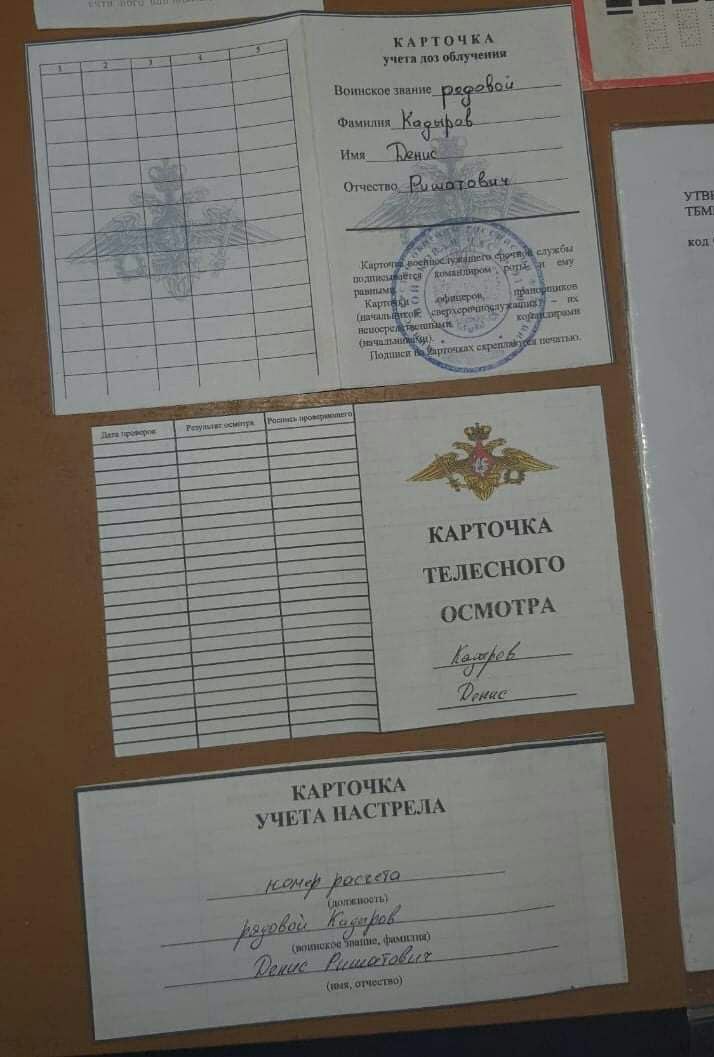 1 2 3 4 5
КАРТОЧКА
учета доз облучения
Воинское звание рядовой
Фамилия Кадыров
Имя Денис
Отчество Ришатович
Карточка военнослужащего срочной службы
подписывается командиром роты и ему
равными.
Карточки офицеров, прапорщиков
(начальников, сверхсрочнослужащих) – их
непосредственными командирами
(начальниками).
Подписи на карточках скрепляются печатью.
УТВ
ТБМ
код
Дата проверок Результат осмотра Роспись проверяющего
КАРТОЧКА
ТЕЛЕСНОГО
ОСМОТРА
Кадыров
Денис
КАРТОЧКА
УЧЕТА НАСТРЕЛА
номер расчета
(должность)
рядовой Кадыров
(воинское звание, фамилия)
Денис Ришатович
(имя, отчество)